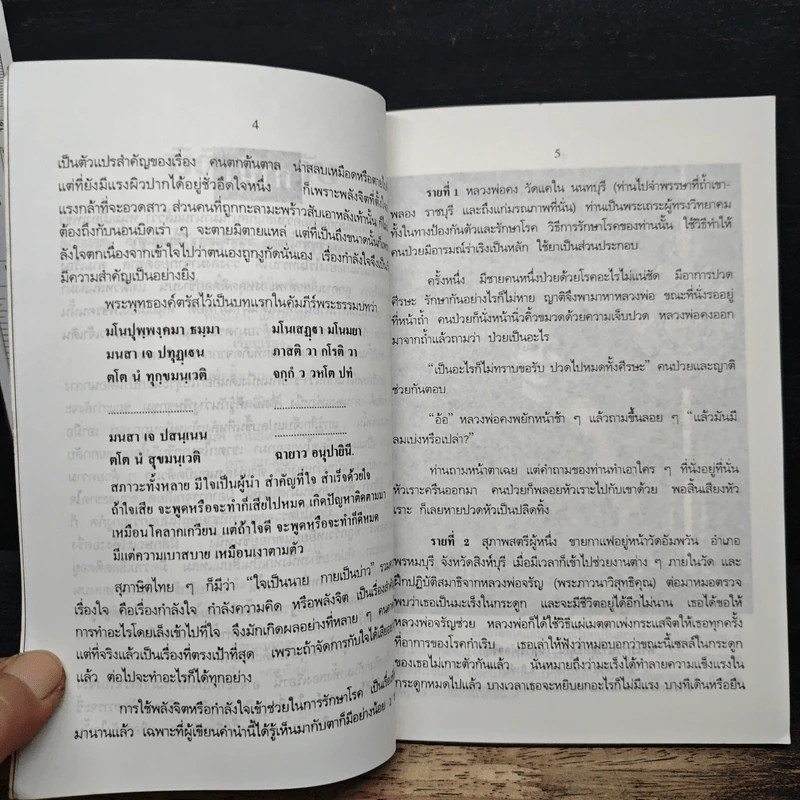 4
เป็นตัวแปรสำคัญของเรื่อง คนตกต้นตาล น่าสลบเหมือดหรือตายไป
แต่ที่ยังมีแรงผิวปากได้อยู่ชั่วอึดใจหนึ่ง ก็เพราะพลังจิตที่ตั้งใจ
แรงกล้าที่จะอวดสาว ส่วนคนที่ถูกกะลามะพร้าวสับเอาหลังเท้านั้น ก็ไม่
ต้องถึงกับนอนบิดเร่า ๆ จะตายมิตายแหล่ แต่ที่เป็นถึงขนาดนั้นก็เพราะ
ลังใจตกเนื่องจากเข้าใจไปว่าตนเองถูกงูกัดนั่นเอง เรื่องกำลังใจจึงเป็น
มีความสำคัญเป็นอย่างยิ่ง
พระพุทธองค์ตรัสไว้เป็นบทแรกในคัมภีร์พระธรรมบทว่า
มโนปุพฺพงฺคมา ธมฺมา มโนเสฏฺฐา มโนมยา
มนสา เจ ปทุฏฺเฐน ภาสติ วา กโรติ วา
ตโต นํ ทุกฺขมนฺเวติ จกฺกํ ว วหโต ปทํ
มนสา เจ ปสนฺเนน
ตโต นํ สุขมนฺเวติ ฉายาว อนุปายินี.
สภาวะทั้งหลาย มีใจเป็นผู้นำ สำคัญที่ใจ สำเร็จด้วยใจ
ถ้าใจเสีย จะพูดหรือจะทำก็เสียไปหมด เกิดปัญหาติดตามมา
เหมือนโคลากเกวียน แต่ถ้าใจดี จะพูดหรือจะทำก็ดีหมด
มีแต่ความเบาสบาย เหมือนเงาตามตัว
สุภาษิตไทย ๆ ก็มีว่า “ใจเป็นนาย กายเป็นบ่าว” รวมความ
เรื่องใจ คือเรื่องกำลังใจ กำลังความคิด หรือพลังจิต เป็นเรื่องสำคัญ
การทำอะไรโดยเล็งเข้าไปที่ใจ จึงมักเกิดผลอย่างที่หลาย ๆ คน
แต่ที่จริงแล้วเป็นเรื่องที่ตรงเป้าที่สุด เพราะถ้าจัดการกับใจได้เสียอย่าง
แล้ว ต่อไปจะทำอะไรก็ได้ทุกอย่าง
การใช้พลังจิตหรือกำลังใจเข้าช่วยในการรักษาโรค เป็นเรื่อง
มานานแล้ว เฉพาะที่ผู้เขียนคำนำนี้ได้รู้เห็นมากับตาก็มีอย่างน้อย 2
5
รายที่ 1 หลวงพ่อคง วัดแคใน นนทบุรี (ท่านไปจำพรรษาที่ถ้ำเขา-
พลอง ราชบุรี และถึงแก่มรณภาพที่นั่น) ท่านเป็นพระเถระผู้ทรงวิทยาคม
ทั้งในทางป้องกันตัวและรักษาโรค วิธีการรักษาโรคของท่านนั้น ใช้วิธีทำให้
คนป่วยมีอารมณ์ร่าเริงเป็นหลัก ใช้ยาเป็นส่วนประกอบ
ครั้งหนึ่ง มีชายคนหนึ่งป่วยด้วยโรคอะไรไม่แน่ชัด มีอาการปวด
ศีรษะ รักษากันอย่างไรก็ไม่หาย ญาติจึงพามาหาหลวงพ่อ ขณะที่นั่งรออยู่
ที่หน้าถ้ำ คนป่วยก็นั่งหน้านิ่วคิ้วขมวดด้วยความเจ็บปวด หลวงพ่อคงออก
มาจากถ้ำแล้วถามว่า ป่วยเป็นอะไร
“เป็นอะไรก็ไม่ทราบขอรับ ปวดไปหมดทั้งศีรษะ” คนป่วยและญาติ
ช่วยกันตอบ
“อ้อ” หลวงพ่อคงพยักหน้าช้า ๆ แล้วถามขึ้นลอย ๆ “แล้วมันมี
ลมเบ่งหรือเปล่า?”
ท่านถามหน้าตาเฉย แต่คำถามของท่านทำเอาใคร ๆ ที่นั่งอยู่ที่นั่น
หัวเราะครืนออกมา คนป่วยก็พลอยหัวเราะไปกับเขาด้วย พอสิ้นเสียงหัว
เราะ ก็เลยหายปวดหัวเป็นปลิดทิ้ง
รายที่ 2 สุภาพสตรีผู้หนึ่ง ขายกาแฟอยู่หน้าวัดอัมพวัน อำเภอ
พรหมบุรี จังหวัดสิงห์บุรี เมื่อมีเวลาก็เข้าไปช่วยงานต่าง ๆ ภายในวัด และ
ฝึกปฏิบัติสมาธิจากหลวงพ่อจรัญ (พระภาวนาวิสุทธิคุณ) ต่อมาหมอตรวจ
พบว่าเธอเป็นมะเร็งในกระดูก และจะมีชีวิตอยู่ได้อีกไม่นาน เธอได้ขอให้
หลวงพ่อจรัญช่วย หลวงพ่อก็ได้ใช้วิธีแผ่เมตตาเพ่งกระแสจิตให้เธอทุกครั้ง
ที่อาการของโรคกำเริบ เธอเล่าให้ฟังว่าหมอบอกว่าขณะนี้เซลล์ในกระดูก
ของเธอไม่เกาะตัวกันแล้ว นั่นหมายถึงว่ามะเร็งได้ทำลายความแข็งแรงใน
กระดูกหมดไปแล้ว บางเวลาเธอจะหยิบยกอะไรก็ไม่มีแรง บางทีเดินหรือยืน